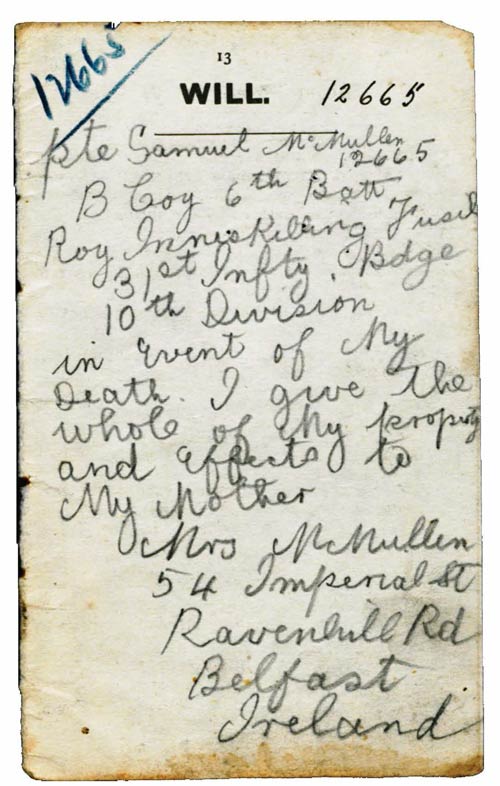 12665
13
WILL. 12665
Pte Samuel McMullen
12665
B Coy 6th Batt
Roy Inniskilling Fusil
31st Infty. Bdge
10th Division
in Event of My
Death. I give the
whole of My property
and Effects to
My Mother
Mrs McMullen
54 Imperial St
Ravenhill Rd
Belfast
Ireland